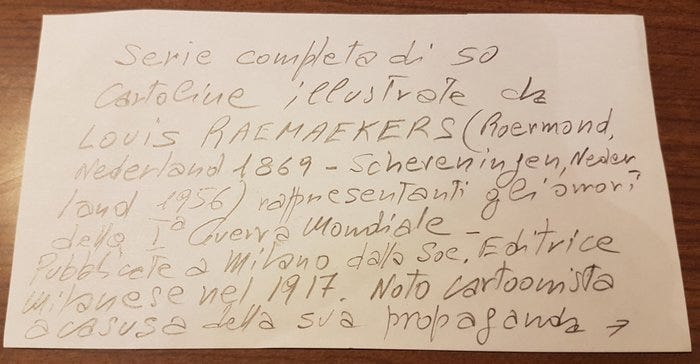 Serie completa di 50
Cartoline illustrate da
LOUIS RAEMAEKERS (Roermond,
Nederland 1869 - Scheveningen, Neder
land 1956) rappresentanti gli orrori
della Iª Guerra Mondiale -
Pubblicate a Milano dalla Soc. Editrice
Milanese nel 1917. Noto cartoonista
a casusa della sua propaganda →